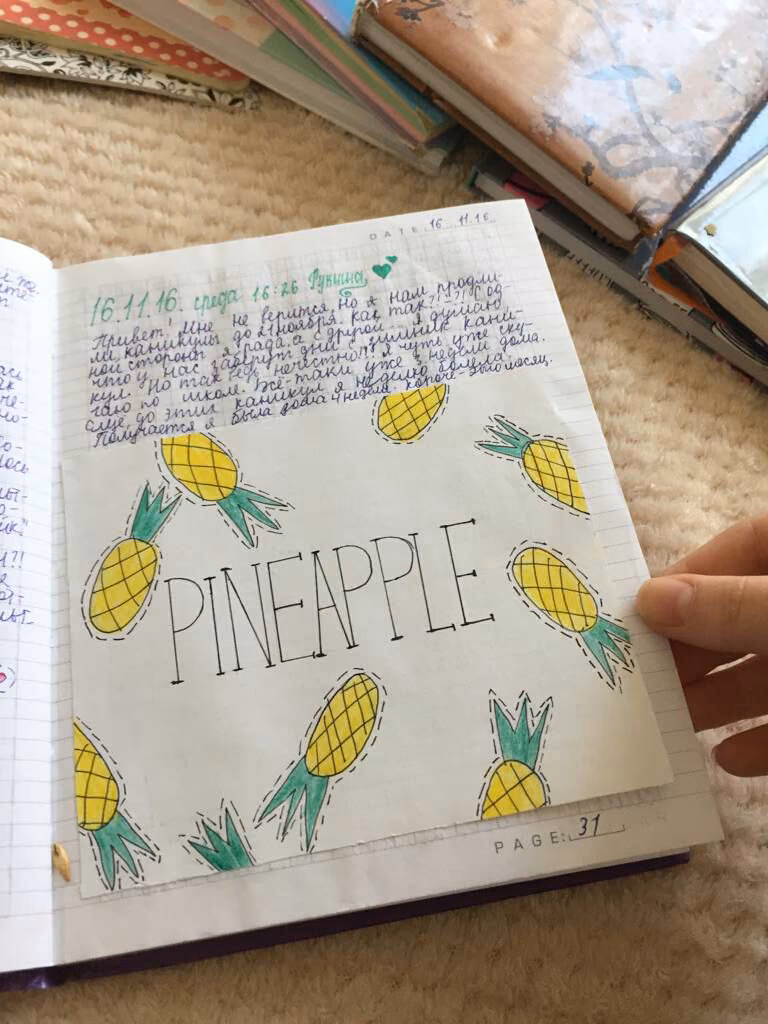 DATE: 16.11.16.
16.11.16. среда 16:26
Привет! Мне не верится, но нам продли-
ли каникулы до 21 ноября! Как так?!?!?! С од-
ной стороны я рада, а с другой я думаю,
что у нас заберут дни с зимних кани-
кул. Но так ведь нечестно!!! Я чуть уже ску-
чаю по школе. Всё-таки уже 3 недели дома.
еще до этих каникул я неделю болела.
Получается я была дома 4 недели, короче - это месяц.
PINEAPPLE
PAGE: 31